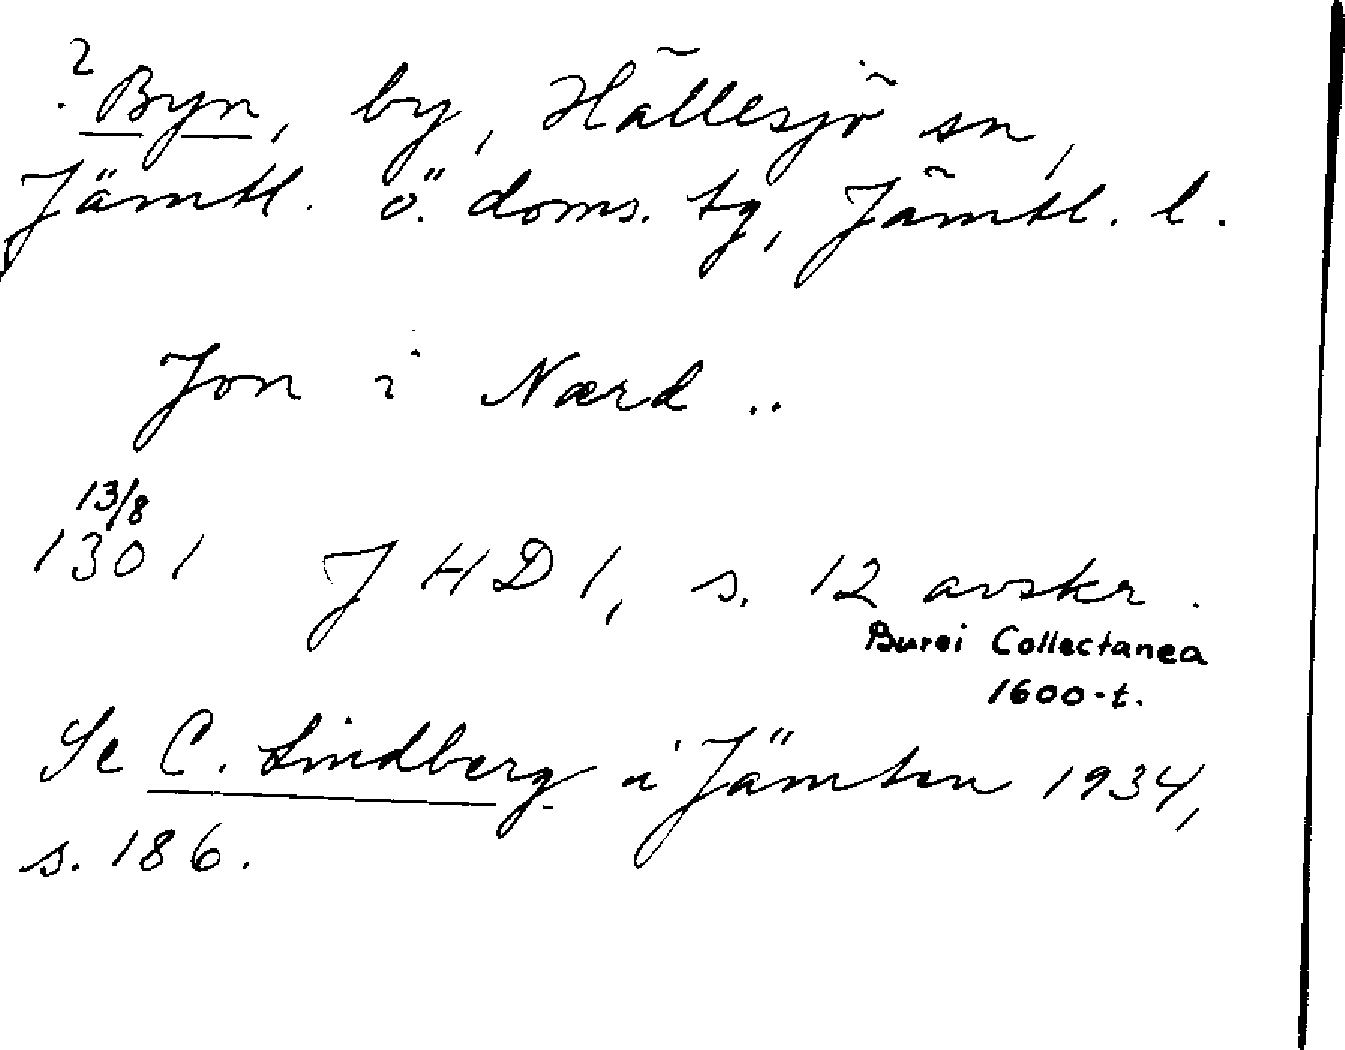 ? Byn, by, Hällesjö sn,
Jämtl. ö. doms. tg, Jämtl. l.
Jon i Nærd ..
13/8
1301 JHD 1, s. 12 avskr.
Burei Collectanea
1600-t.
Se C. Lindberg i Jämten 1934,
s. 186.